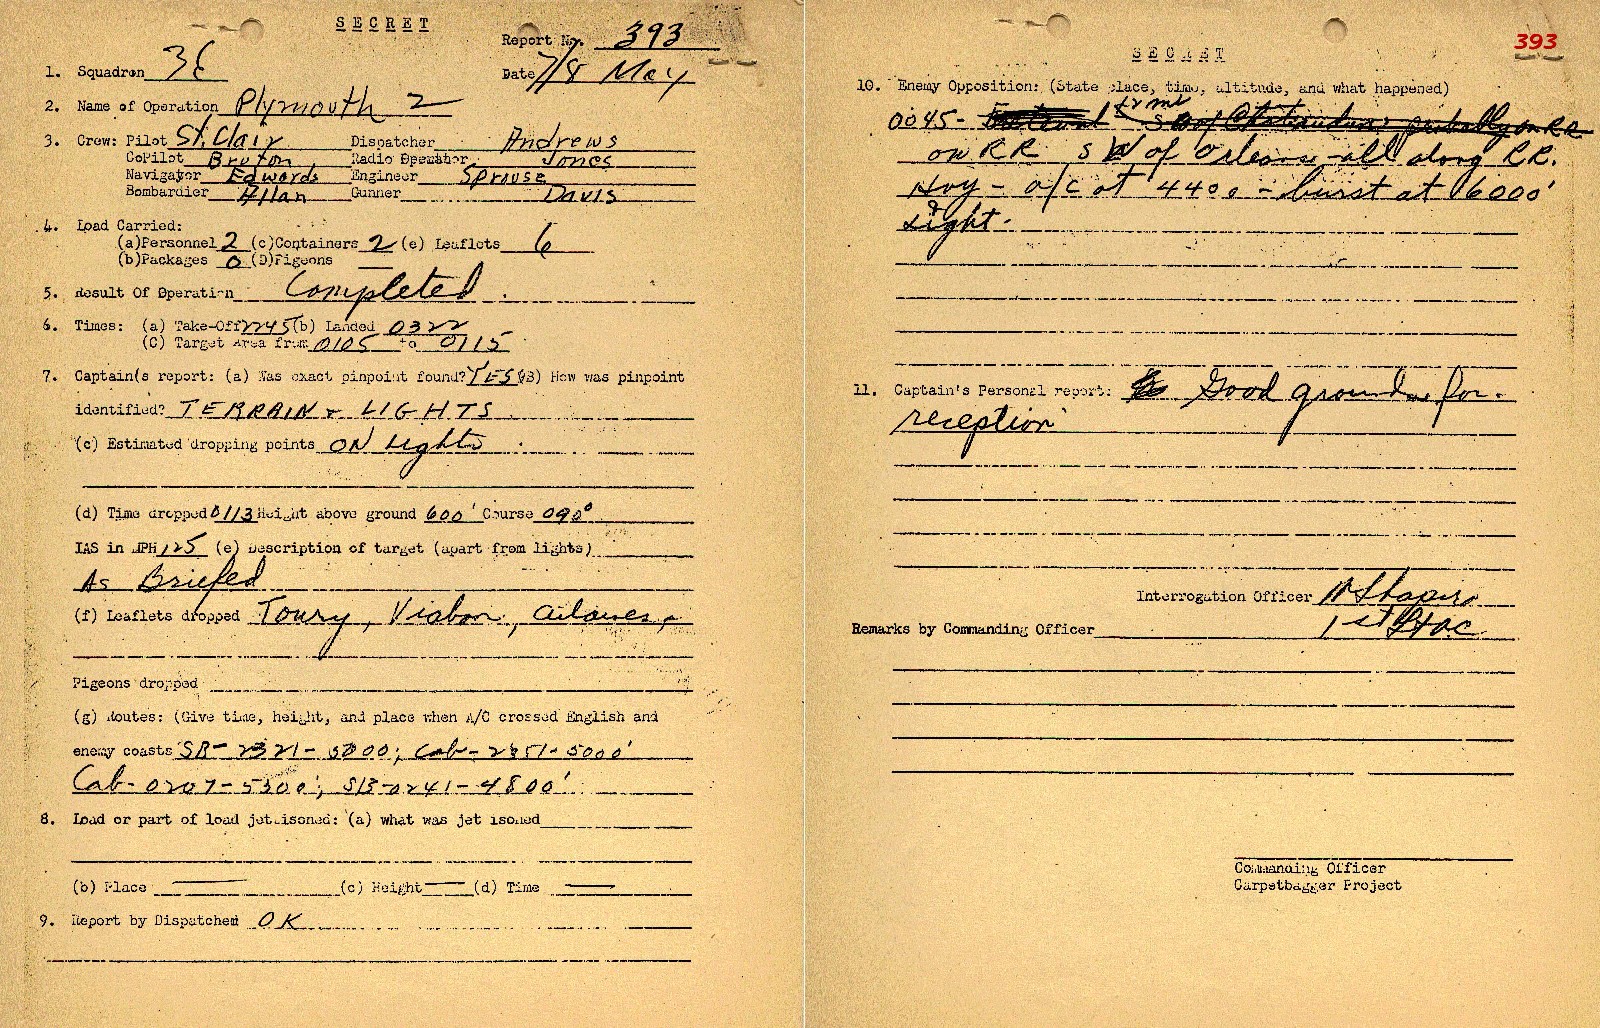 SECRET
Report No. 393
1. Squadron 36 Date 7/8 May
2. Name of Operation Plymouth 2
3. Crew: Pilot St.Clair Dispatcher Andrews
CoPilot Bruton Radio Operator Jones
Navigator Edwards Engineer Sprouse
Bombardier Allan Gunner Davis
4. Load Carried:
(a)Personnel 2 (c)Containers 2 (e) Leaflets 6
(b)Packages 0 (D)Pigeons
5. Result Of Operation Completed.
6. Times: (a) Take-Off 2245 (b) Landed 0322
(C) Target Area from 0105 to 0115
7. Captain(s report: (a) Was exact pinpoint found? YES (B) How was pinpoint
identified? TERRAIN & LIGHTS
(c) Estimated dropping points ON Lights.
(d) Time dropped 0113 Height above ground 600' Course 090°
IAS in MPH 125 (e) Description of target (apart from lights)
As Briefed
(f) Leaflets dropped Toury,
Pigeons dropped
(g) Routes: (Give time, height, and place when A/C crossed English and
enemy coasts SB- 2321- 5000; Cab- 2351- 5000'
Cab- 0207- 5300'; SB-0241- 4800'
8. Load or part of load jettisoned: (a) what was jettisoned
(b) Place (c) Height (d) Time
9. Report by Dispatcher OK
393
SECRET
10. Enemy Opposition: (State place, time, altitude, and what happened)
0045- from S of Chateaudun probably on RR
on RR SW of Orleans - all along RR.
Hvy - a/c at 4400 - burst at 6000'
& light.
11. Captain's Personal report: Good ground for
reception
Interrogation Officer Shapiro
Remarks by Commanding Officer 1st Lt AC
Commanding Officer
Carpetbagger Project